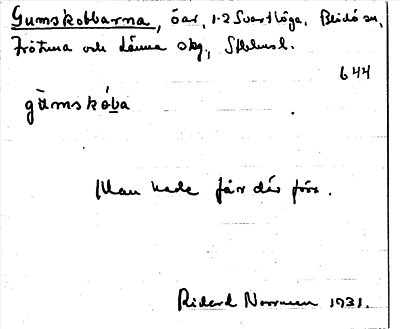 Gumskobbarna, öar, 1-2 Svartlöga, Blidö sn,
Frötuna och Länna skg, Sthlms l.
644
gùmskó̱ba
Man hade får där förr.
Rickard Norrman 1931.